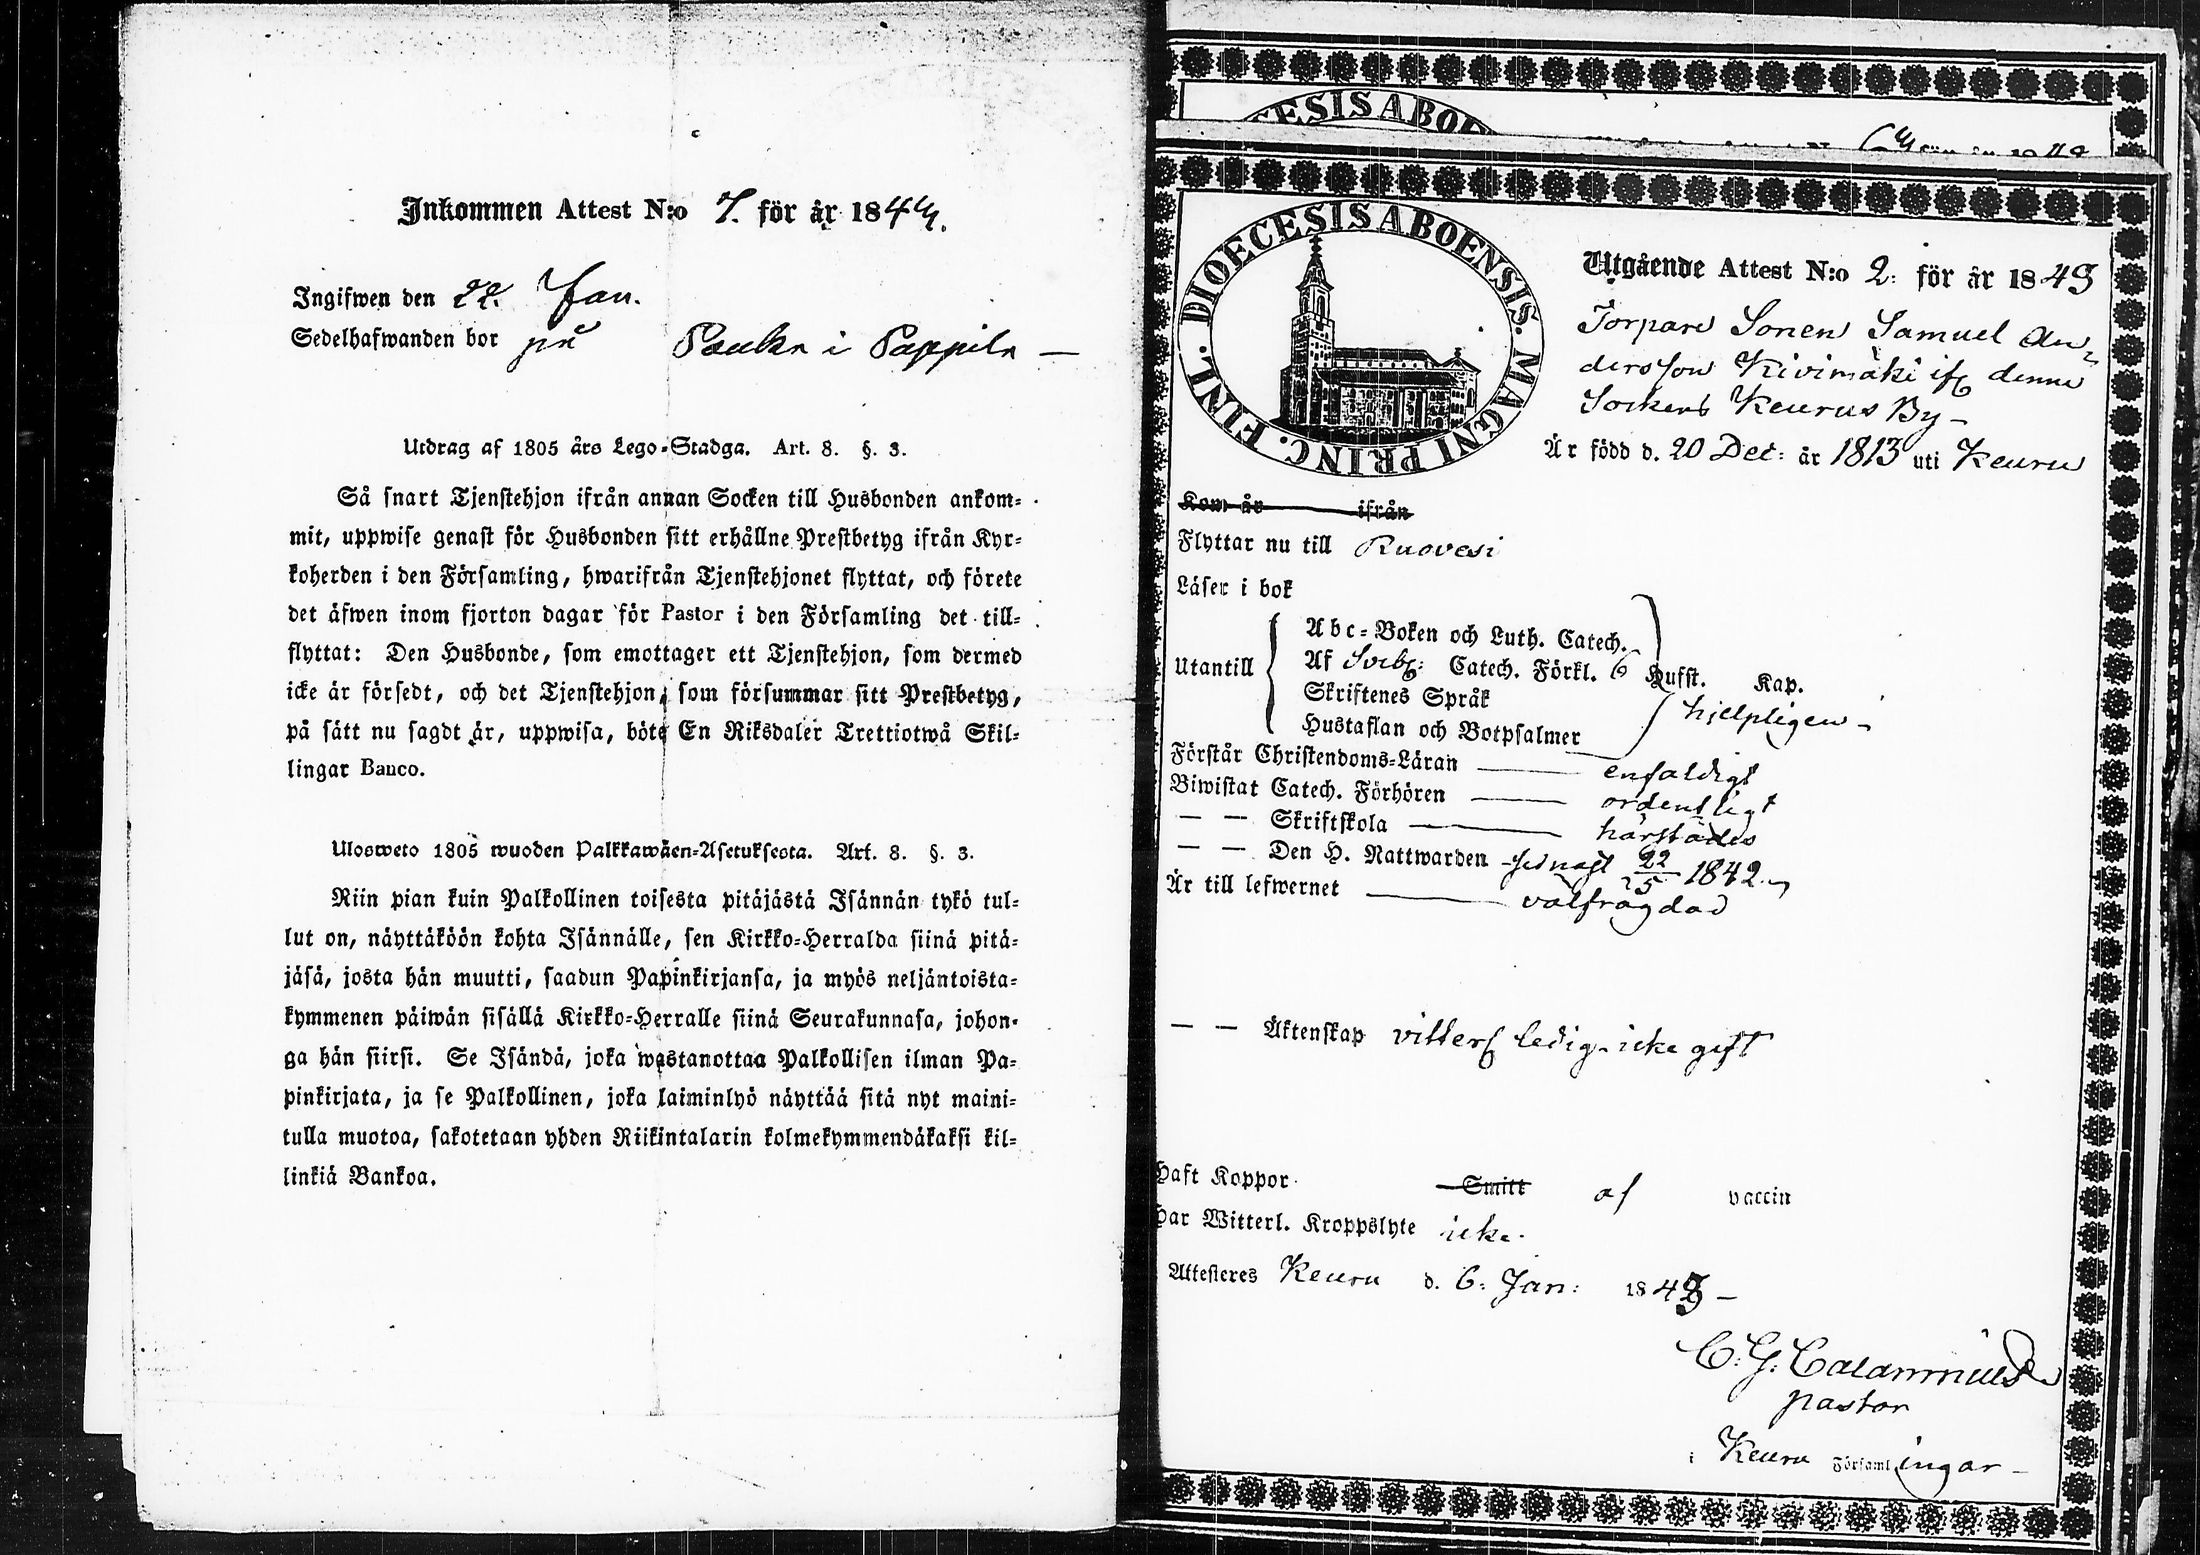 Inkommen Attest N:o 7. för år 1844.
Ingifwen den 22. Jan.
Sedelhafwanden bor på Paukn i Pappila —
Utdrag af 1805 års Lego-Stadga. Art. 8. §. 3.
Så snart Tjenstehjon ifrån annan Socken till Husbonden ankom-
mit, uppwise genast för Husbonden sitt erhållne Prestbetyg ifrån Kyr-
koherden i den Församling, hwarifrån Tjenstehjonet flyttat, och förete
det äfwen inom fjorton dagar för Pastor i den Församling det till-
flyttat: Den Husbonde, som emottager ett Tjenstehjon, som dermed
icke är försedt, och det Tjenstehjon, som försummar sitt Prestbetyg,
på sätt nu sagdt är, uppwisa, böte En Riksdaler Trettiotwå Skil-
lingar Banco.
Ulosweto 1805 wuoden Palkkawäen-Asetuksesta. Art. 8. §. 3.
Niin pian kuin Palkollinen toisesta pitäjästä Isännän tykö tul-
lut on, näyttäköön kohta Isännälle, sen Kirkko-Herralda siinä pitä-
jäsä, josta hän muutti, saadun Papinkirjansa, ja myös neljäntoista-
kymmenen päiwän sisällä Kirkko-Herralle siinä Seurakunnasa, johon-
ga hän siirsi. Se Isändä, joka wastanottaa Palkollisen ilman Pa-
pinkirjata, ja se Palkollinen, joka laiminlyö näyttää sitä nyt maini-
tulla muotoa, sakotetaan yhden Riikintalarin kolmekymmendäkaksi kil-
linkiä Bankoa.
DIOECESIS ABOENSIS. MAGNI PRINC. FINL.
Utgående Attest N:o 2: för år 1843
Torpare Sonen Samuel An-
dersson Kivimäki if denne
Sockens Keurus By -
Är född d. 20 Dec: år 1813 uti Keuru
Kom år ifrån
Flyttar nu till Ruovesi
Läser i bok
Abc-Boken och Luth. Catech.
Utantill Af Svebg: Catech. Förkl. 6 Hufst. Kap.
Skriftenes Språk
Hustaflan och Botpsalmer hjelpligen -
Förstår Christendoms-Läran — enfaldigt
Biwistat Catech. Förhören — ordentligt
— — Skriftskola — härstädes
— — Den H. Nattwarden sednast 22/5 1842.
Är till lefwernet — välfrägdad
— — Äktenskap vitterl ledig - icke gift
Haft Koppor Smitt af vaccin
Har Witterl. Kroppslyte icke.
Attesteres Keuru d. 6: Jan: 1843 —
C. G. Calamnius
pastor
i Keuru Församlingar —